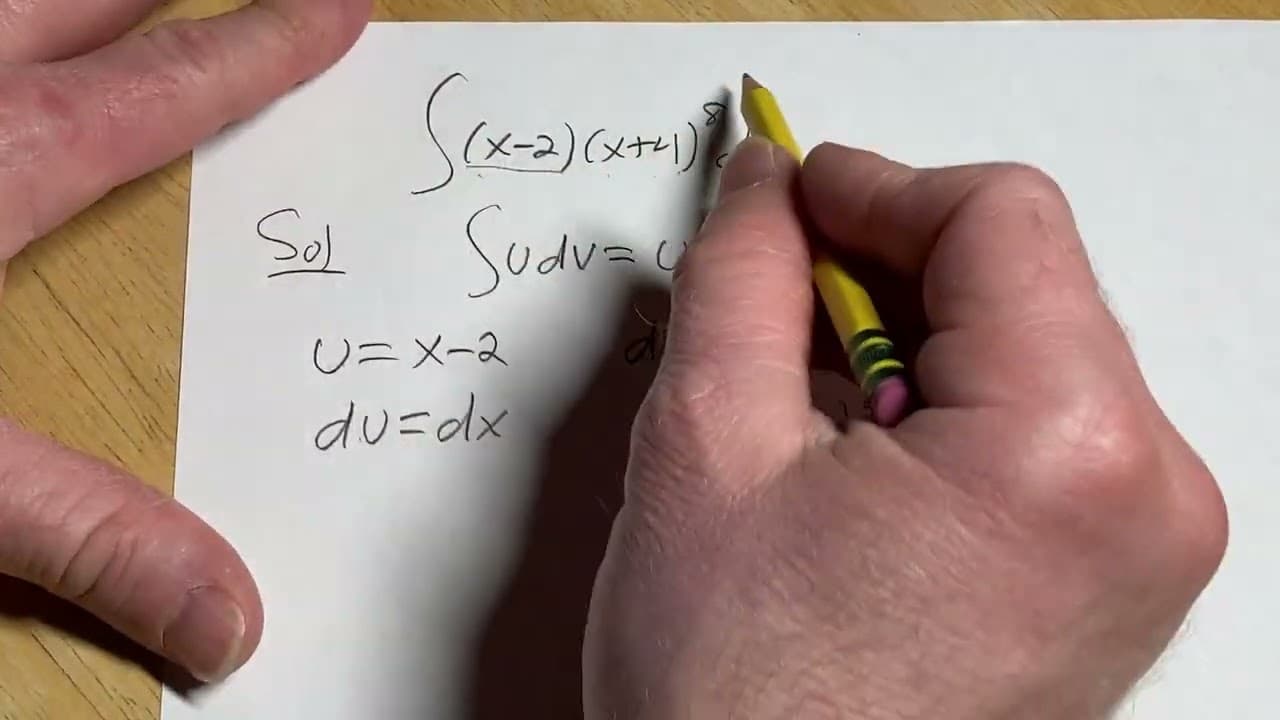 ∫(x-2)(x+4)⁸
Sol ∫udv= u
u= x-2
du=dx